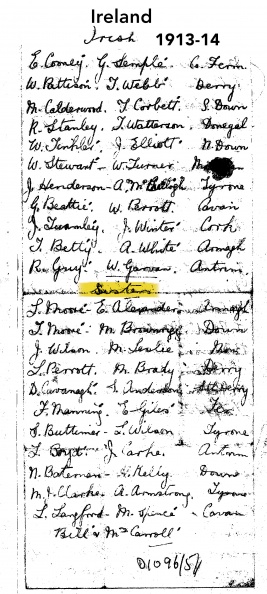 Ireland
Irish 1913-14
E. Cooney. G. Semple. Co. Ferm
W. Pattison. T. Webb. Derry
M. Calderwood. T. Corbett. S. Down
R. Stanley. T. Watterson. Donegal
W. Tinkler. J. Elliott. N. Down
W. Stewart - W. Turner
J. Henderson - A. Tyrone
G. Beattie. W. Cavan
J. Twamley. J. Winter Cork
T. Betty. A. White Armagh
R. Grey. W. Antrim
Sisters
L. Moore - E. Alexander Armagh
T. Moore - M. Down
J. Wilson. M. Leslie
L. Perrott. M. Brady. Derry
D. Cavanagh. S. Anderson Derry
F. Manning. E. Giles
S. Buttimer - L. Wilson Tyrone
L. Boyd. J. Antrim
N. Bateman - Kelly. Down
M. J. Clarke. A. Armstrong. Tyrone
L. Langford - M. Spence Cavan
Bill & McCarroll
D1096/5/